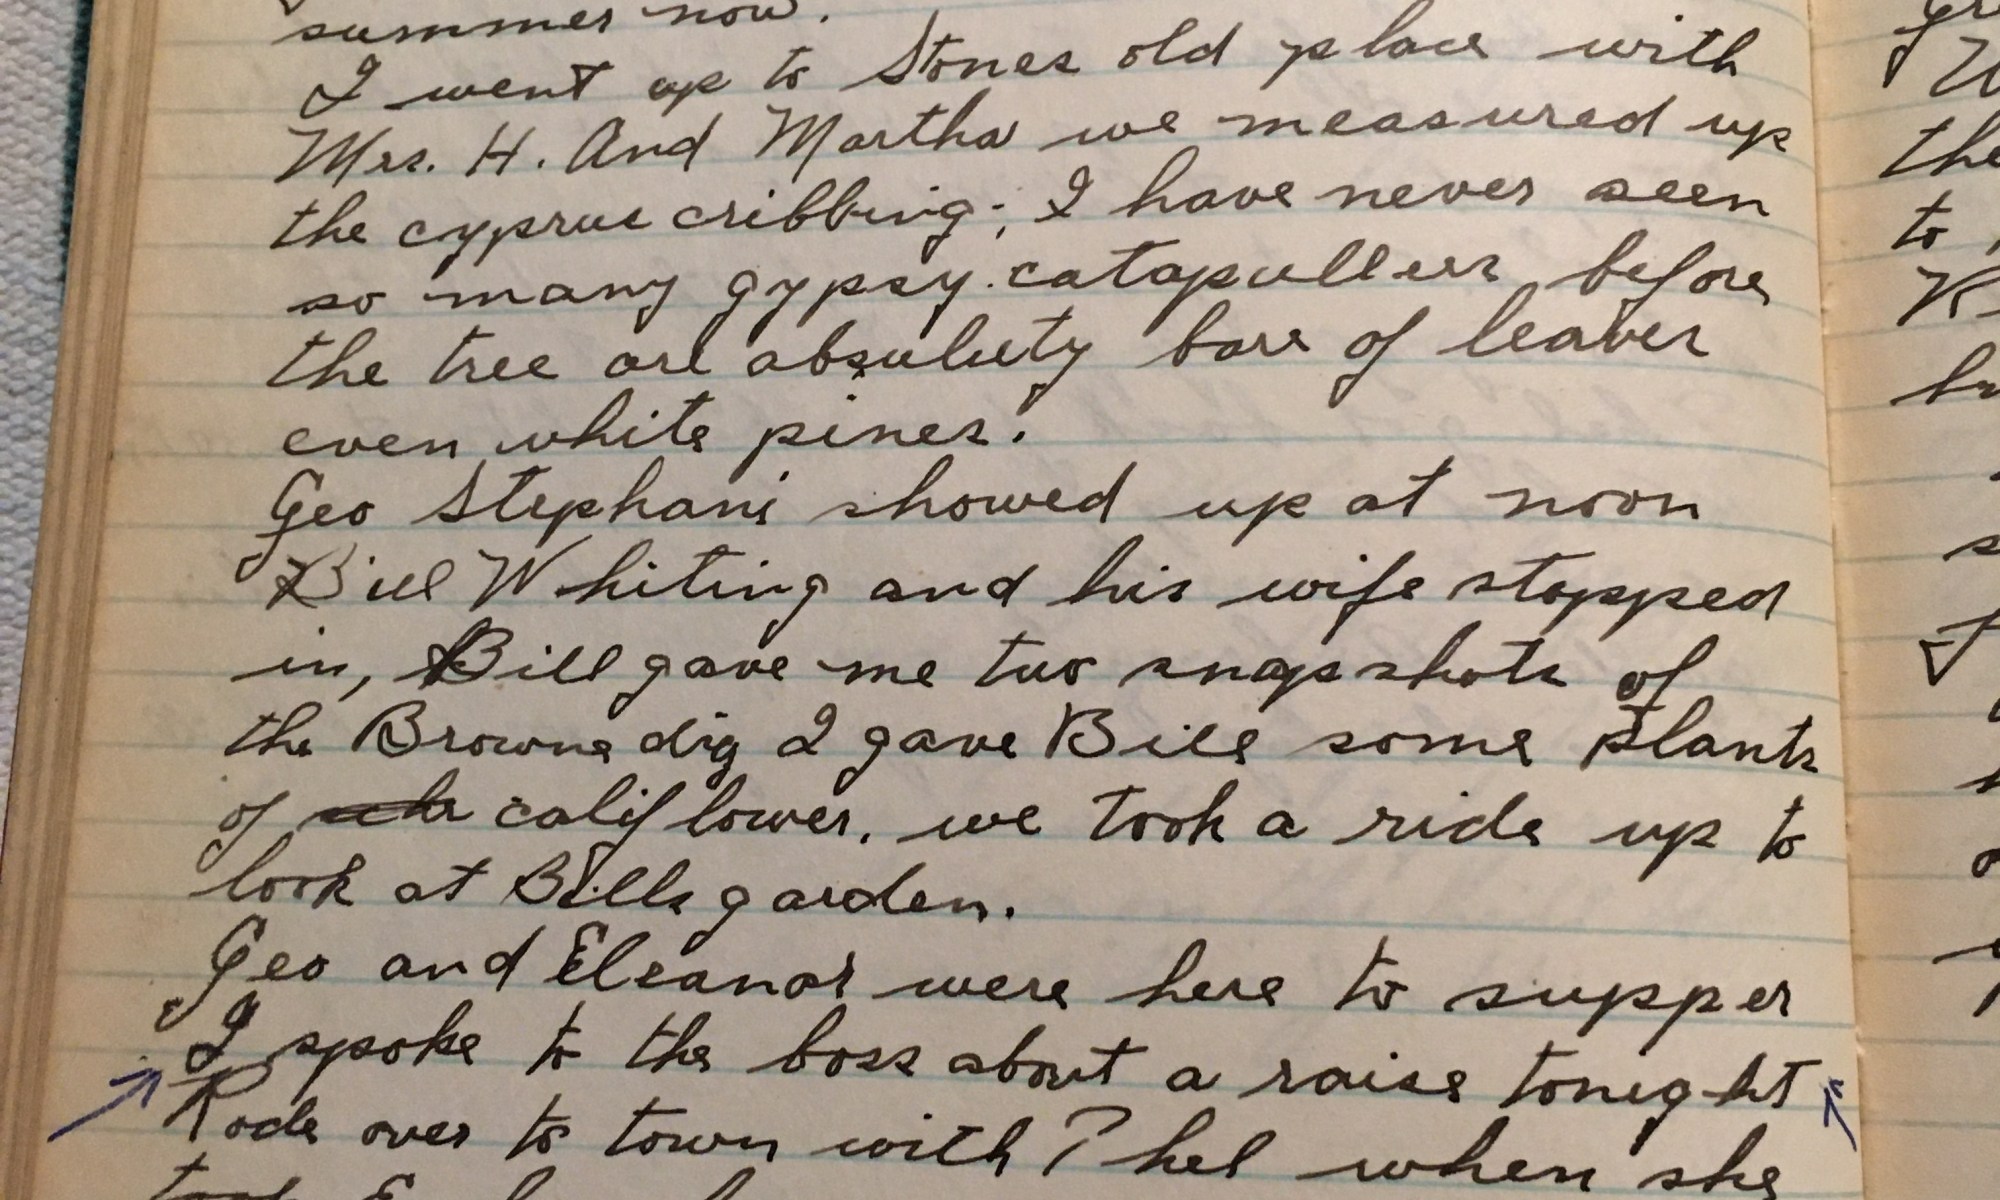 summer now.
I went up to Stones old place with
Mrs. H. And Martha we measured up
the cyprus cribbing; I have never seen
so many gypsy catapullers before
the tree are absoluty bare of leaves
even white pines.
Geo Stephani showed up at noon
Bill Whiting and his wife stopped
in, Bill gave me two snapshots of
the Browne dig I gave Bill some plants
of califlower. we took a ride up to
look at Bills garden.
Geo and Eleanor were here to supper
I spoke to the boss about a raise tonight
Rode over to town with Phel when she
took